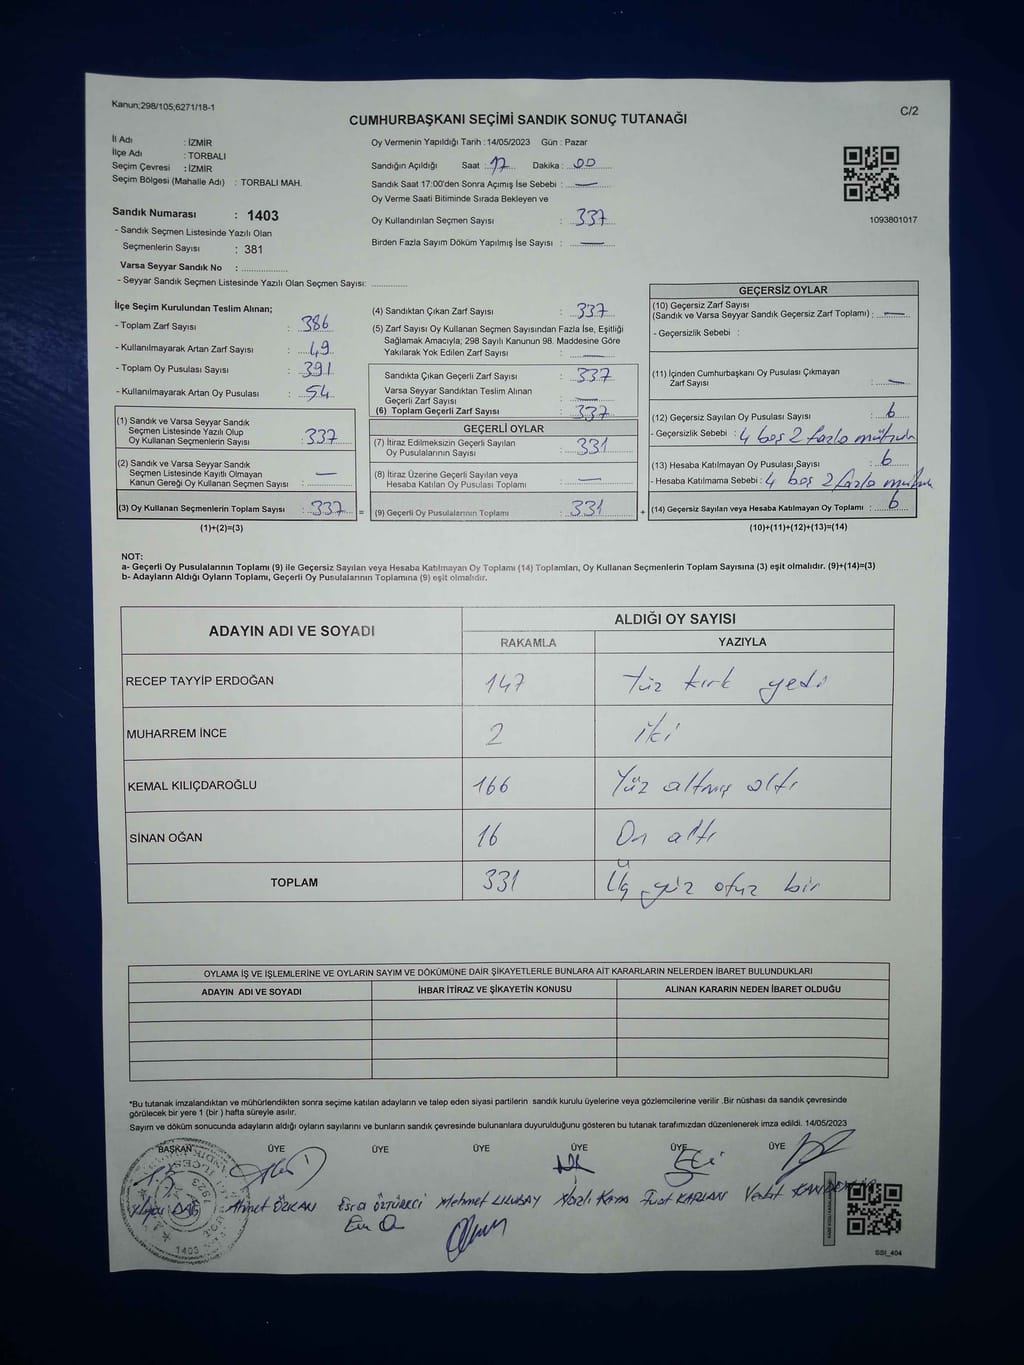 Kanun;298/105,6271/18-1
C/2
CUMHURBAŞKANI SEÇİMİ SANDIK SONUÇ TUTANAĞI
İl Adı : İZMİR
İlçe Adı : TORBALI
Seçim Çevresi : İZMİR
Seçim Bölgesi (Mahalle Adı) : TORBALI MAH.
Oy Vermenin Yapıldığı Tarih : 14/05/2023 Gün : Pazar
Sandığın Açıldığı Saat : 17 Dakika : 00
Sandık Saat 17:00'den Sonra Açımış İse Sebebi : —
Oy Verme Saati Bitiminde Sırada Bekleyen ve
Oy Kullandırılan Seçmen Sayısı : 337
Birden Fazla Sayım Döküm Yapılmış İse Sayısı : —
1093801017
Sandık Numarası : 1403
- Sandık Seçmen Listesinde Yazılı Olan
Seçmenlerin Sayısı : 381
Varsa Seyyar Sandık No : ..................
- Seyyar Sandık Seçmen Listesinde Yazılı Olan Seçmen Sayısı: .............
İlçe Seçim Kurulundan Teslim Alınan;
- Toplam Zarf Sayısı : 386
- Kullanılmayarak Artan Zarf Sayısı : 49
- Toplam Oy Pusulası Sayısı : 391
- Kullanılmayarak Artan Oy Pusulası : 54
(1) Sandık ve Varsa Seyyar Sandık
Seçmen Listesinde Yazılı Olup
Oy Kullanan Seçmenlerin Sayısı : 337
(2) Sandık ve Varsa Seyyar Sandık
Seçmen Listesinde Kayıtlı Olmayan
Kanun Gereği Oy Kullanan Seçmen Sayısı : —
(3) Oy Kullanan Seçmenlerin Toplam Sayısı : 337 =
(1)+(2)=(3)
(4) Sandıktan Çıkan Zarf Sayısı : 337
(5) Zarf Sayısı Oy Kullanan Seçmen Sayısından Fazla İse, Eşitliği
Sağlamak Amacıyla; 298 Sayılı Kanunun 98. Maddesine Göre
Yakılarak Yok Edilen Zarf Sayısı : —
Sandıkta Çıkan Geçerli Zarf Sayısı : 337
Varsa Seyyar Sandıktan Teslim Alınan
Geçerli Zarf Sayısı : —
(6) Toplam Geçerli Zarf Sayısı : 337
GEÇERLİ OYLAR
(7) İtiraz Edilmeksizin Geçerli Sayılan
Oy Pusulalarının Sayısı : 331
(8) İtiraz Üzerine Geçerli Sayılan veya
Hesaba Katılan Oy Pusulası Toplamı : —
(9) Geçerli Oy Pusulalarının Toplamı : 331 +
GEÇERSİZ OYLAR
(10) Geçersiz Zarf Sayısı
(Sandık ve Varsa Seyyar Sandık Geçersiz Zarf Toplamı) : —
- Geçersizlik Sebebi :
(11) İçinden Cumhurbaşkanı Oy Pusulası Çıkmayan
Zarf Sayısı : —
(12) Geçersiz Sayılan Oy Pusulası Sayısı : 6
- Geçersizlik Sebebi : 4 boş 2 fazla mühür
(13) Hesaba Katılmayan Oy Pusulası Sayısı : 6
- Hesaba Katılmama Sebebi : 4 boş 2 fazla mühür
(14) Geçersiz Sayılan veya Hesaba Katılmayan Oy Toplamı : 6
(10)+(11)+(12)+(13)=(14)
NOT:
a- Geçerli Oy Pusulalarının Toplamı (9) ile Geçersiz Sayılan veya Hesaba Katılmayan Oy Toplamı (14) Toplamları, Oy Kullanan Seçmenlerin Toplam Sayısına (3) eşit olmalıdır. (9)+(14)=(3)
b- Adayların Aldığı Oyların Toplamı, Geçerli Oy Pusulalarının Toplamına (9) eşit olmalıdır.
ADAYIN ADI VE SOYADI
ALDIĞI OY SAYISI
RAKAMLA YAZIYLA
RECEP TAYYİP ERDOĞAN 147 Yüz kırk yedi
MUHARREM İNCE 2 İki
KEMAL KILIÇDAROĞLU 166 Yüz altmış altı
SİNAN OĞAN 16 On altı
TOPLAM 331 Üç yüz otuz bir
OYLAMA İŞ VE İŞLEMLERİNE VE OYLARIN SAYIM VE DÖKÜMÜNE DAİR ŞİKAYETLERLE BUNLARA AİT KARARLARIN NELERDEN İBARET BULUNDUKLARI
ADAYIN ADI VE SOYADI İHBAR İTİRAZ VE ŞİKAYETİN KONUSU ALINAN KARARIN NEDEN İBARET OLDUĞU
*Bu tutanak imzalandıktan ve mühürlendikten sonra seçime katılan adayların ve talep eden siyasi partilerin sandık kurulu üyelerine veya gözlemcilerine verilir .Bir nüshası da sandık çevresinde
görülecek bir yere 1 (bir ) hafta süreyle asılır.
Sayım ve döküm sonucunda adayların aldığı oyların sayılarını ve bunların sandık çevresinde bulunanlara duyurulduğunu gösteren bu tutanak tarafımızdan düzenlenerek imza edildi. 14/05/2023
BAŞKAN ÜYE ÜYE ÜYE ÜYE ÜYE ÜYE
Ahmet ÖZKAN Esra ÖZTÜRKCİ Mehmet ULUSAY Nazlı KAYA Fuat KARLAN Vedat
1923
1403
SSI_404